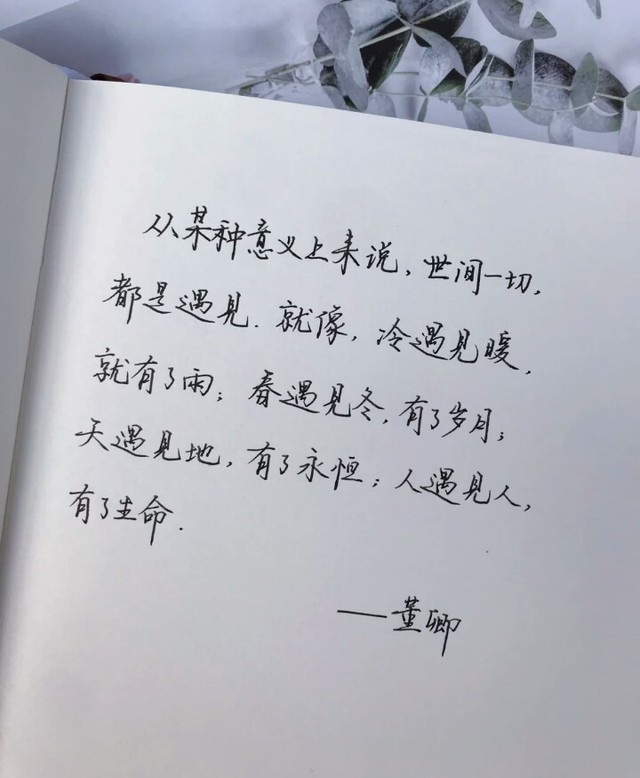 从某种意义上来说，世间一切，
都是遇见.就像，冷遇见暖，
就有了雨；春遇见冬，有了岁月；
天遇见地，有了永恒；人遇见人，
有了生命.
——董卿